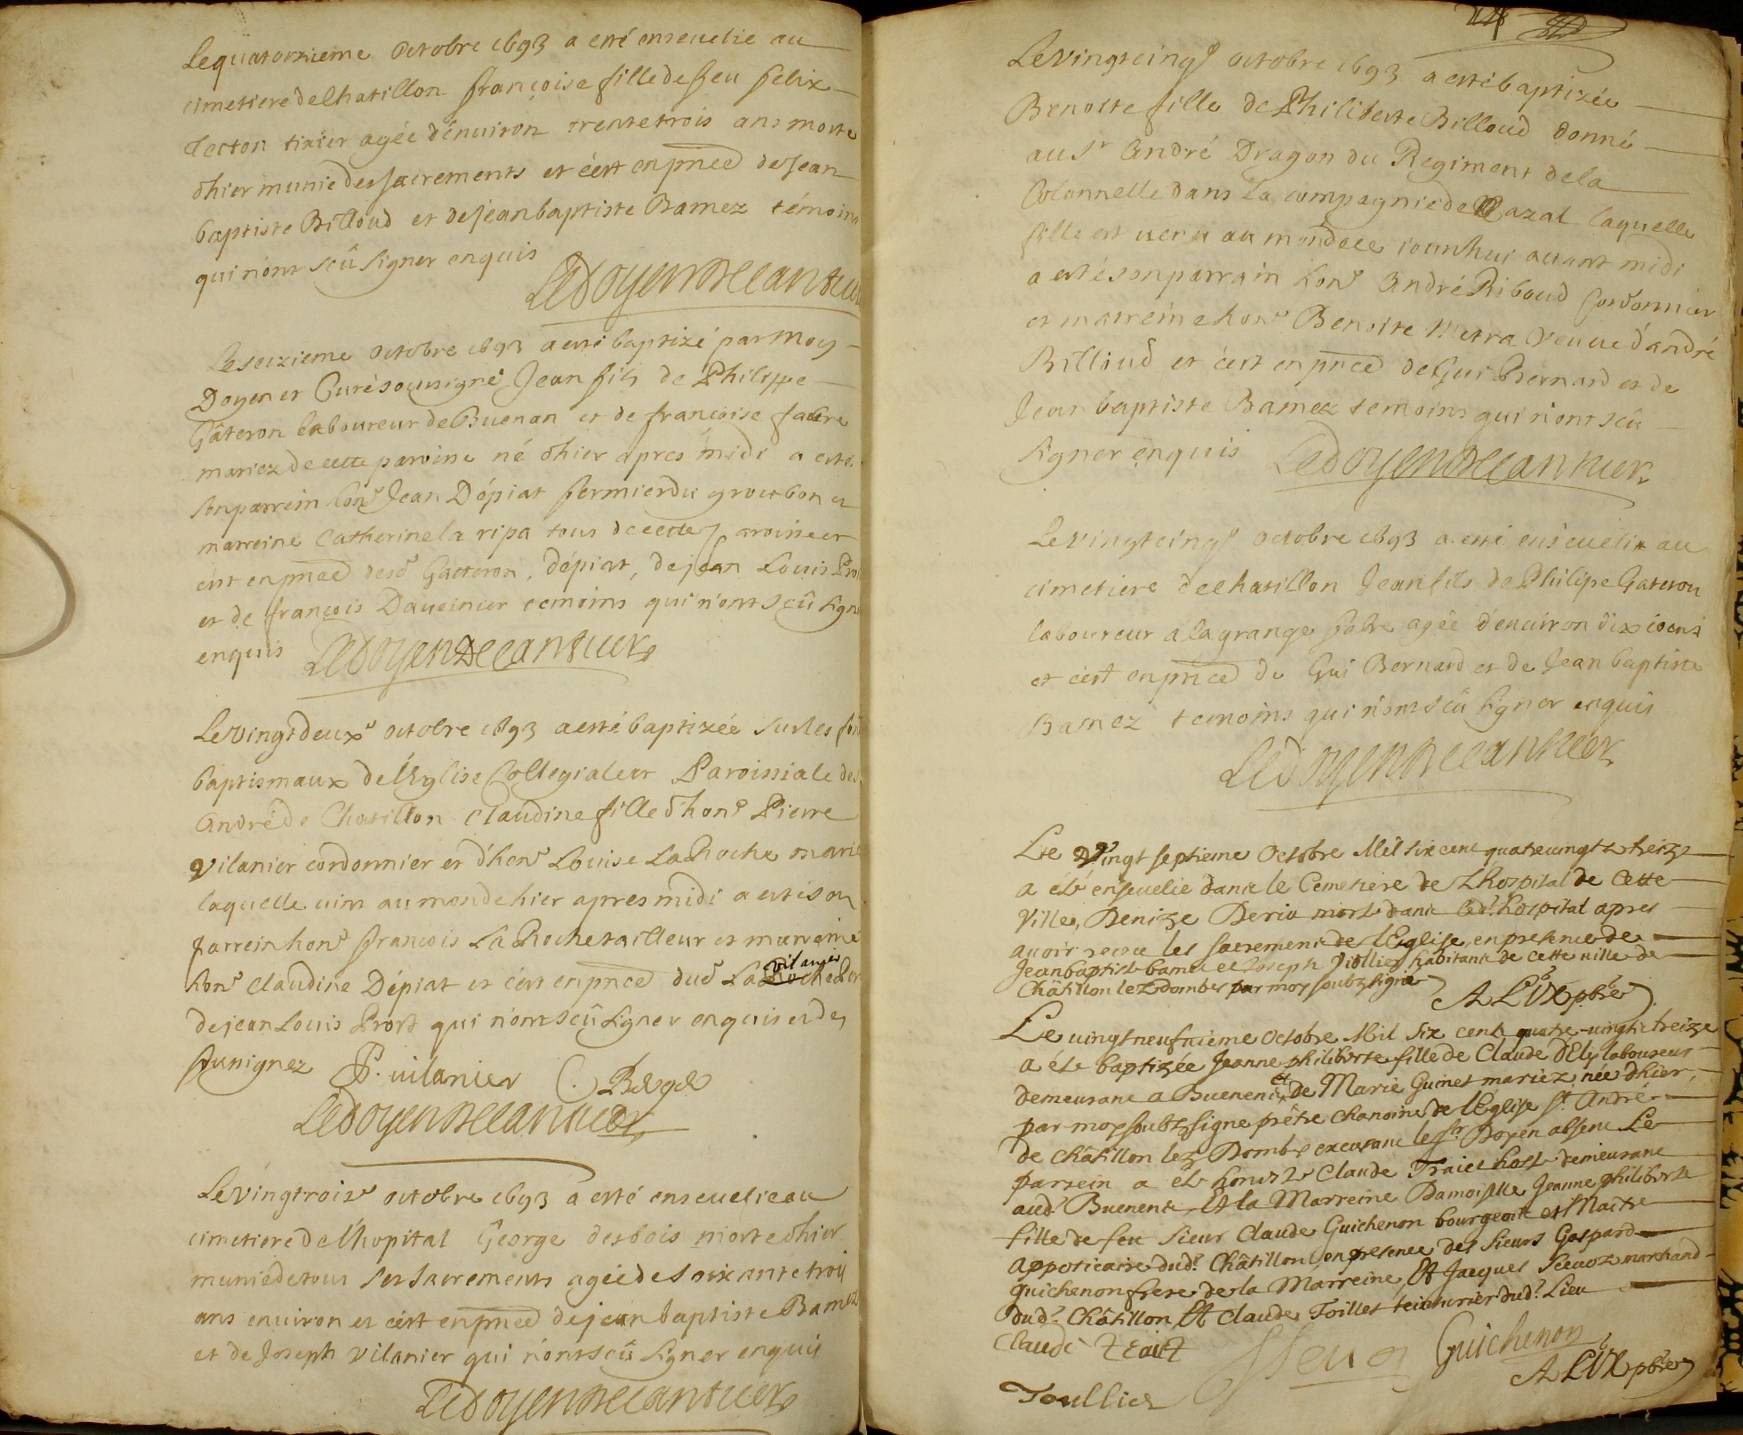 Le quatorzieme octobre 1693 a esté ensevelie au
cimetiere de Chatillon françoise fille de feu felix
tixier agée d'environ trente trois ans morte
d'hier munie des sacrements et c'est en pnce de Jean
baptiste Billoud et de jean baptiste Bamez témoins
qui n'ont sçû signer enquis
Ledoyen Decantuer
Le seizieme octobre 1693 a esté baptizé par moy
Doyen et Curé soussigné Jean fils de Philippe
Gâteron laboureur de Buenan et de françoise fabre
mariez de cette paroisse né d'hier apres midi a esté
son parrein hon.e Jean Dépiat fermier du
marreine Catherine la ripa tous de cette paroisse et
c'est en pnce desd Gatteron, dépiat, de jean Louis
et de françois Daveinier temoins qui n'ont sçû signer
enquis Ledoyen Decantuer
Le vingt deuxe octobre 1693 a esté baptizée sur les
baptismaux de l'Eglise Collegiale et Paroissiale de
André de Chatillon Claudine fille d'hon.e Pierre
Vilanier cordonnier et d'hon.e Louise La Roche
laquelle vint au monde hier apres midi a esté son
parrein hon.e françois La Roche tailleur et marreine
hon.e Claudine Dépiat et c'est en pnce dud La Roche
vilanier
de jean Louis Prost qui n'ont sçû signer enquis et des
sousignez P. vilanier
Ledoyen Decantuer
Le vingtroise octobre 1693 a esté ensevelie au
cimetiere de l'hopital George desbois morte d'hier
munie de tous ses sacrements agée de soixante trois
ans environ et c'est en pnce de jean baptiste Bamez
et de Joseph vilanier qui n'ont sçû signer enquis
Ledoyen Decantuer
Le vingt cinqe octobre 1693 a esté baptizée
Benoite fille de Philiberte Billoud donné
au Sr André Dragon du Regiment de la
Colonnelle dans la compagnie de Cazal laquelle
fille est venu au monde ce jourdhui avant midi
a esté son parrain hon.e André Riboud Cordonnier
et marreine hon.e Benoite Metra Veuve d'andré
Billioud et c'est en pnce de Gui Bernard et de
Jean baptiste Bamez temoins qui n'ont sçû
signer enquis Ledoyen Decantuer
Le vingt cinqe octobre 1693 a esté ensevelie au
cimetiere de Chatillon Jean fils de Philipe Gateron
laboureur a la grange fabre agée d'environ dix jours
et c'est en pnce de Gui Bernard et de Jean baptiste
Bamez temoins qui n'ont sçû signer enquis
Ledoyen Decantuer
Le vingt septieme Octobre Mil six cent quatrevingts treize
a été ensevelie dans le Cemetiere de Lhospital de Cette
Ville, Denize Deriu morte dans led. hospital apres
avoir receu les sacremens de l'Eglise, en presence de
Jean baptiste bamé et Joseph Violliez habitans de cette ville de
Châtillon lez Dombes par moy soubzsigné A LUX pbre
Le vingt neufvieme Octobre Mil six cents quatre-vingts treize
a été baptizée Jeanne philiberte fille de Claude d'Ely laboureur
demeurant a Buenenc et de Marie Guinet mariez, née d'hier,
par moy soubzsigné prêtre chanoine de l'Eglise St André
de Châtillon lez Dombe excusant le Sr Doyen absent Le
parrein a été Claude Traict hoste demeurant
aud. Buenenc Et la Marreine Damoiselle Jeanne philiberte
fille de feu Sieur Claude Guichenon bourgeois et Maître
appoticaire dud. Châtillon, en presence des Sieurs Gaspard
guichenon frere de la Marreine, Et Jacques marchand
dud. Châtillon Et Claude Toillet teinturier dud. Lieu
Claude traict Guichenon
A LUX pbre
Toullier